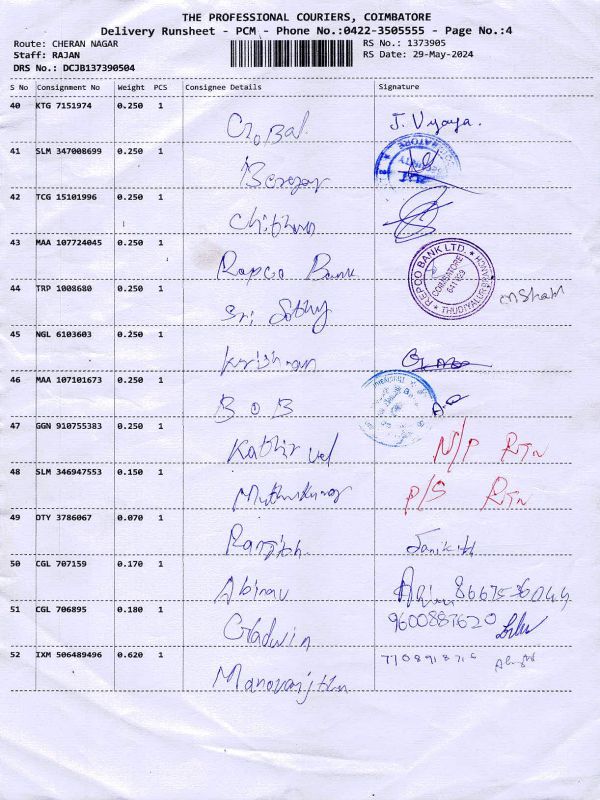 THE PROFESSIONAL COURIERS, COIMBATORE
Delivery Runsheet - PCM - Phone No.:0422-3505555 - Page No.:4
Route: CHERAN NAGAR RS No.: 1373905
Staff: RAJAN RS Date: 29-May-2024
DRS No.: DCJB137390504
S No Consignment No Weight PCS Consignee Details Signature
40 KTG 7151974 0.250 1
Global. J. Vijaya.
41 SLM 347008699 0.250 1
42 TCG 15101996 0.250 1
43 MAA 107724045 0.250 1
Repco Bank REPCO BANK LTD. COIMBATORE THUDIYALUR BRANCH
44 TRP 1008680 0.250 1
Sri
45 NGL 6103603 0.250 1
Krishnan
46 MAA 107101673 0.250 1
B O B
47 GGN 910755383 0.250 1
Kathir vel N/P RTN
48 SLM 346947553 0.150 1
Muthukumar P/S RTN
49 DTY 3786067 0.070 1
50 CGL 707159 0.170 1
Abinav
51 CGL 706895 0.180 1
Gladwin 9600887620
52 IXM 506489496 0.620 1